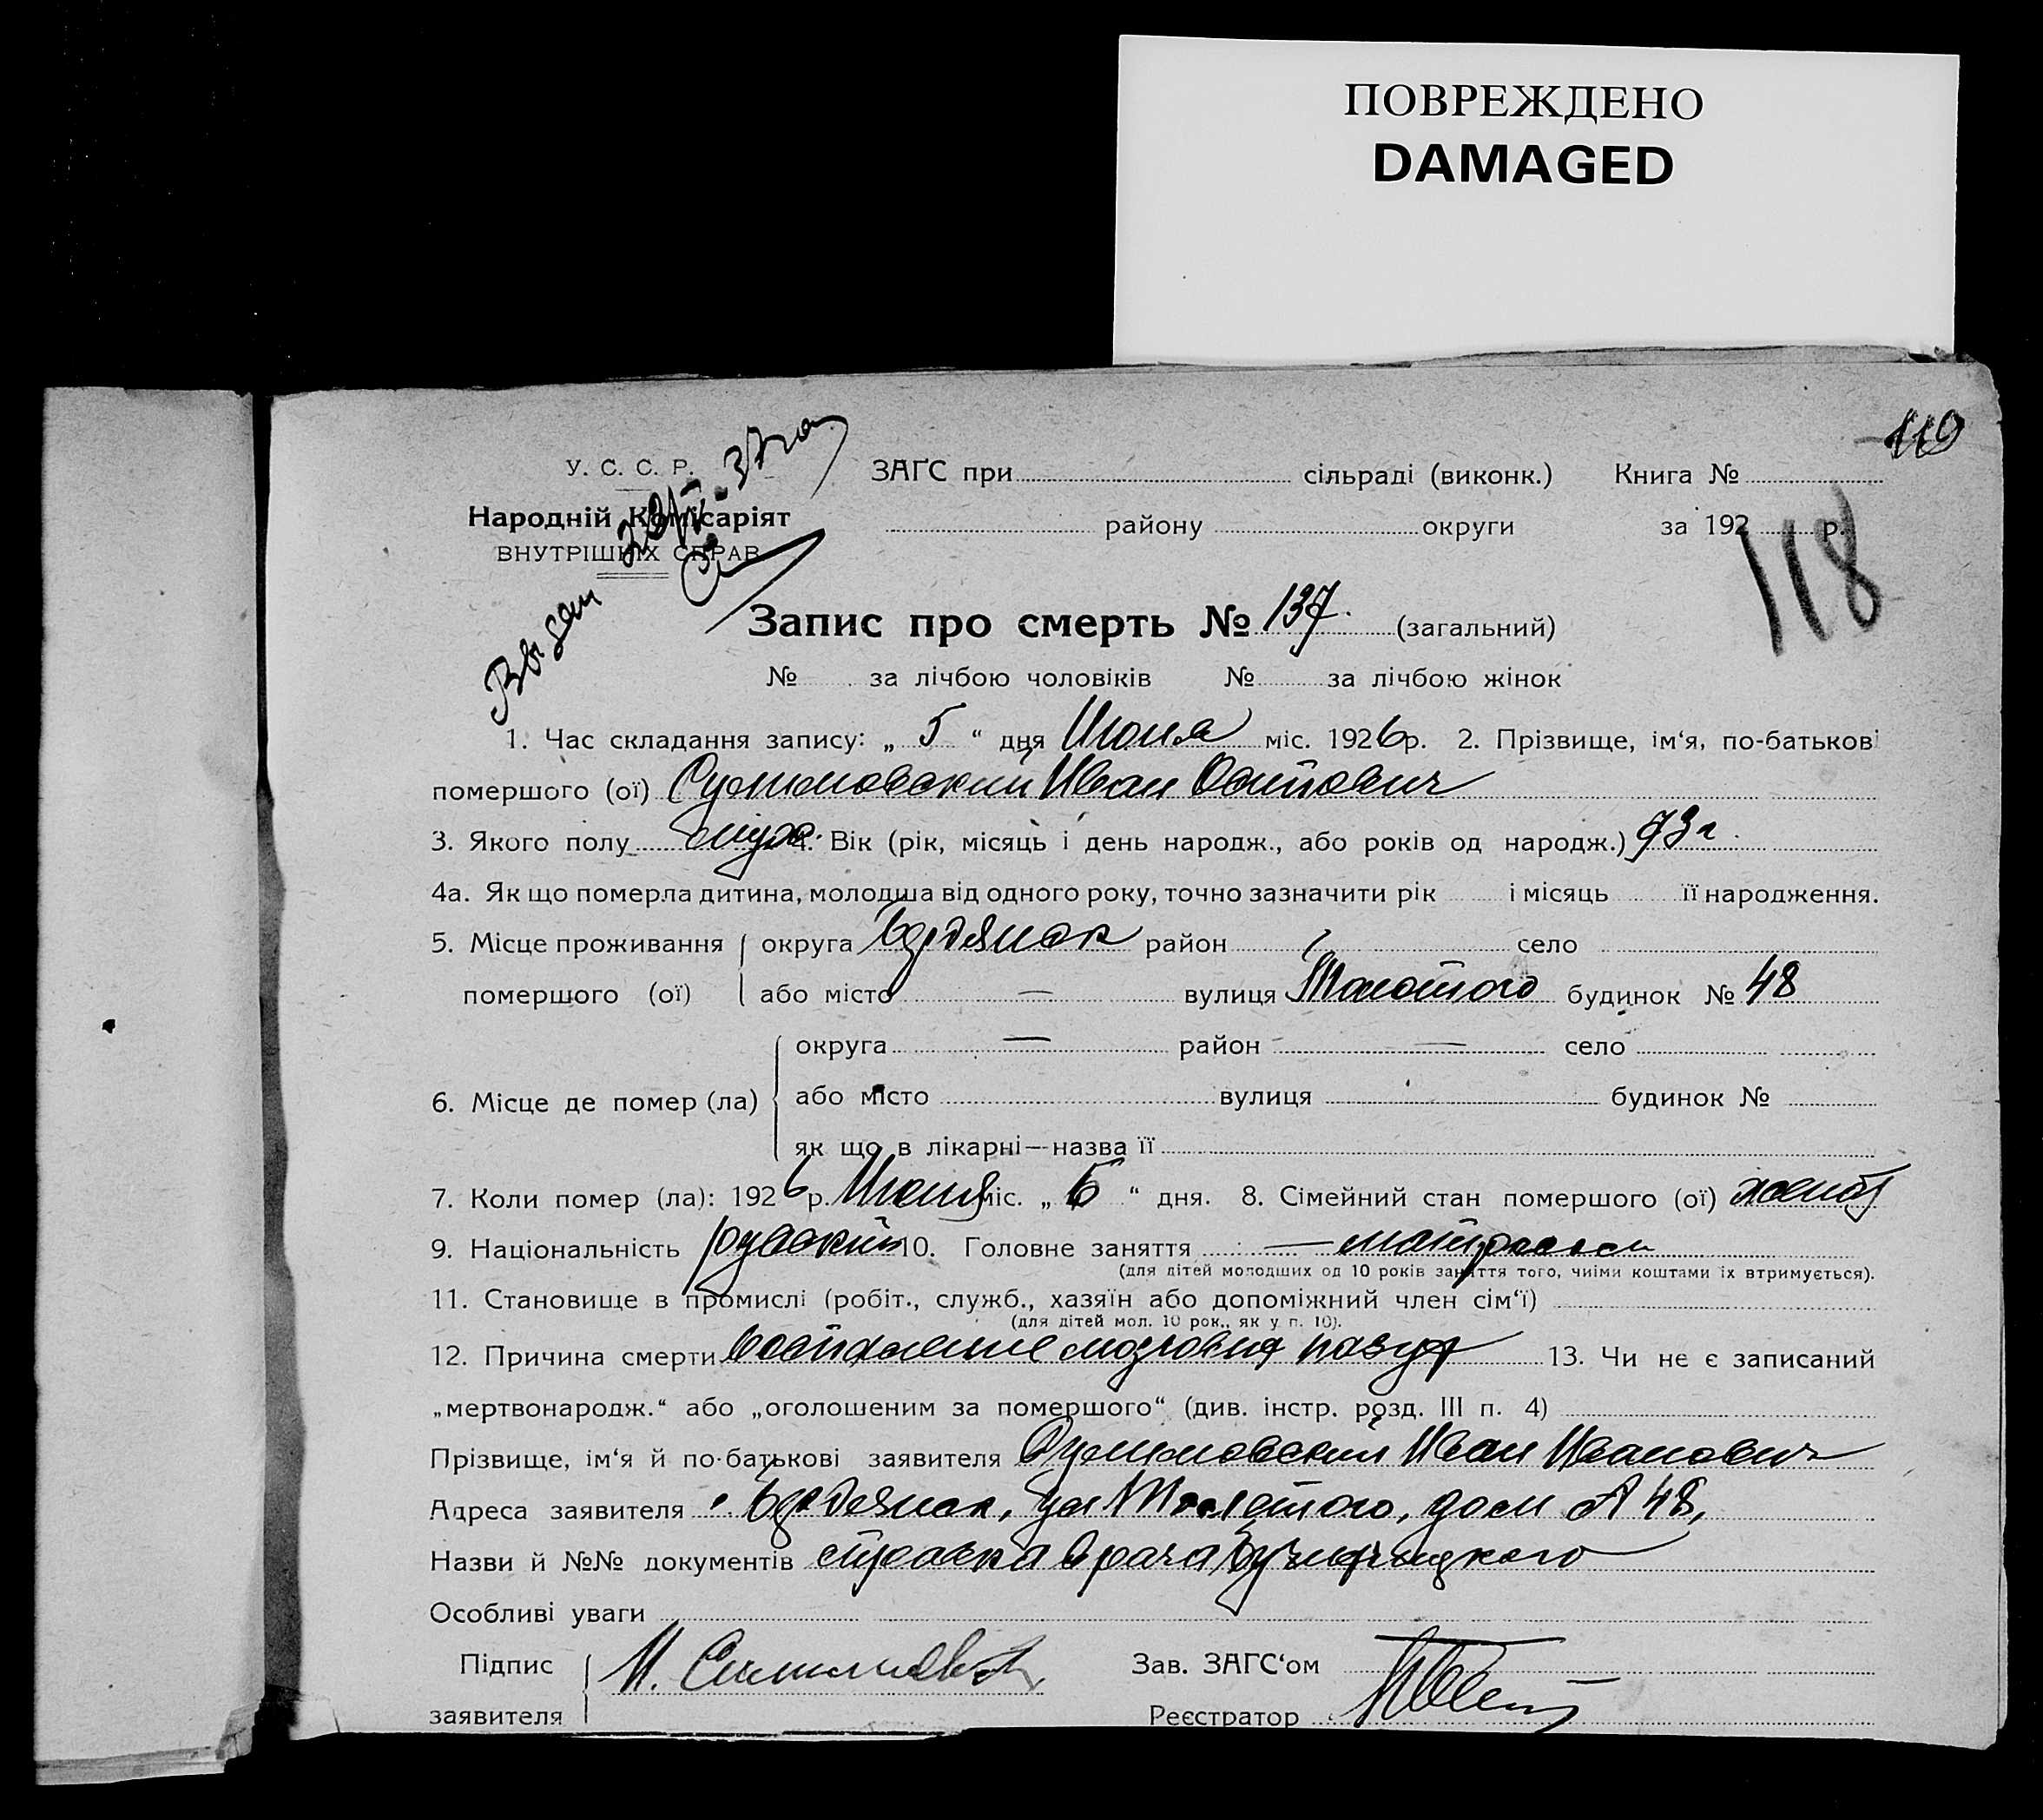 ПОВРЕЖДЕНО
DAMAGED
119
У. С. С. Р.
ЗАГС при сільраді (виконк.) Книга №
Народній Комісаріят
району округи за 192 р.
ВНУТРІШНІХ СПРАВ
118
Выдан
Запис про смерть № 137. (загальний)
№ за лічбою чоловіків № за лічбою жінок
1. Час складання запису: „ 5 “ дня Июня міс. 1926р. 2. Прізвище, ім‘я, по-батькові
помершого (ої) Иван Осипович
3. Якого полу муж. 4. Вік (рік, місяць і день народж., або років од народж.) 73 г.
4а. Як що померла дитина, молодша від одного року, точно зазначити рік і місяць її народження.
5. Місце проживання округа Бердянск район село
помершого (ої) або місто — вулиця Толстого будинок № 48
округа — район — село
6. Місце де помер (ла) або місто вулиця будинок №
як що в лікарні—назва її
7. Коли помер (ла): 1926 р. Июня міс. „ 5 “ дня. 8. Сімейний стан помершого (ої) женат
9. Національність русский 10. Головне заняття —
(для дітей молодших од 10 років заняття того, чиїми коштами їх втримується).
11. Становище в промислі (робіт., служб., хазяїн або допоміжний член сім‘ї)
(для дітей мол. 10 рок., як у п. 10).
12. Причина смерти воспаление мозговых пазух 13. Чи не є записаний
„мертвонародж.“ або „оголошеним за помершого“ (див. інстр. розд. III п. 4)
Прізвище, ім‘я й по-батькові заявителя Иван Иванович
Адреса заявителя Бердянск, ул Толстого, дом № 48,
Назви й №№ документів справка врача
Особливі уваги
Підпис Зав. ЗАГС‘ом
заявителя Реєстратор